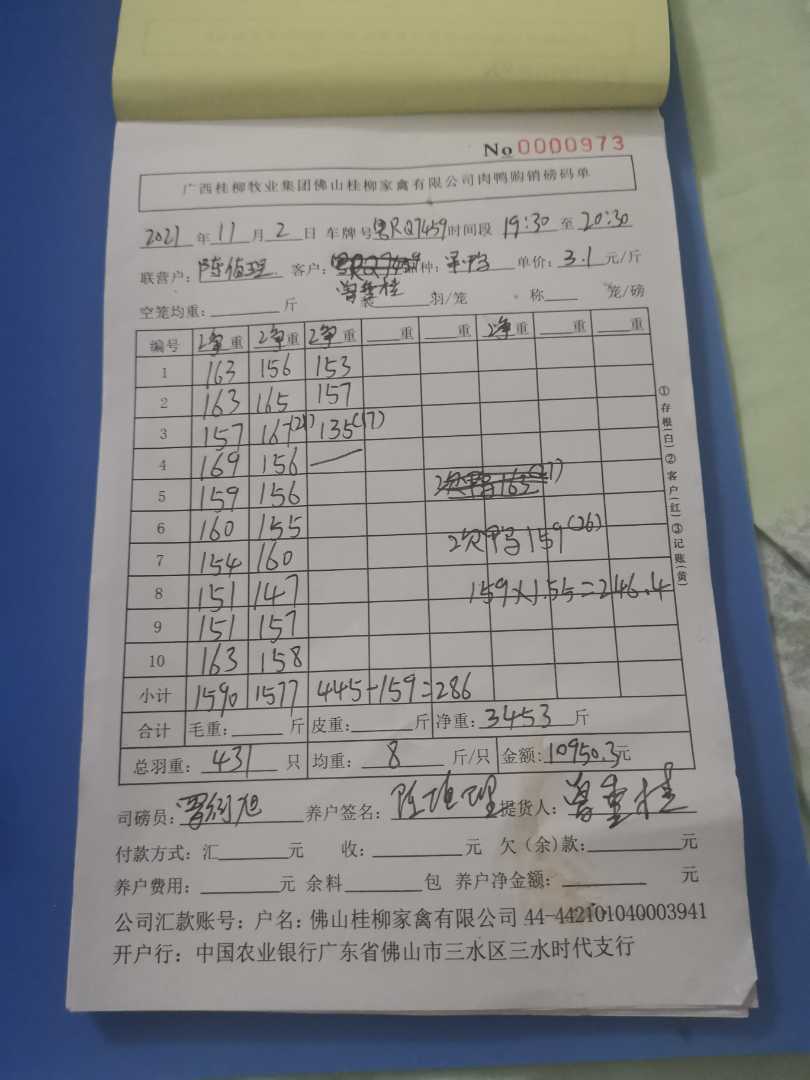 No 0000973
广西桂柳牧业集团佛山桂柳家禽有限公司肉鸭购销磅码单
2021 年 11 月 2 日 车牌号 粤RQ7459 时间段 19:30 至 20:30
联营户: 客户: 种: 单价: 3.1 元/斤
空笼均重: 斤 装 羽/笼 称 笼/磅
编号 净重 净重 净重 重 重 净重 重 重
1 163 156 153
2 163 165 157
3 157 167(21) 135(17)
4 169 156
5 159 156
6 160 155 次鸭 159(26)
7 154 160
8 151 147 159×1.55=246.4
9 151 157
10 163 158
小计 1590 1577 445-159=286
合计 毛重: 斤 皮重: 斤 净重: 3453 斤
总羽重: 431 只 均重: 8 斤/只 金额: 10950.3元
司磅员: 养户签名: 提货人:
付款方式: 汇 元 收: 元 欠(余)款: 元
养户费用: 元 余料 包 养户净金额: 元
公司汇款账号: 户名: 佛山桂柳家禽有限公司 44-442101040003941
开户行: 中国农业银行广东省佛山市三水区三水时代支行
①存根(白)②客户(红)③记账(黄)